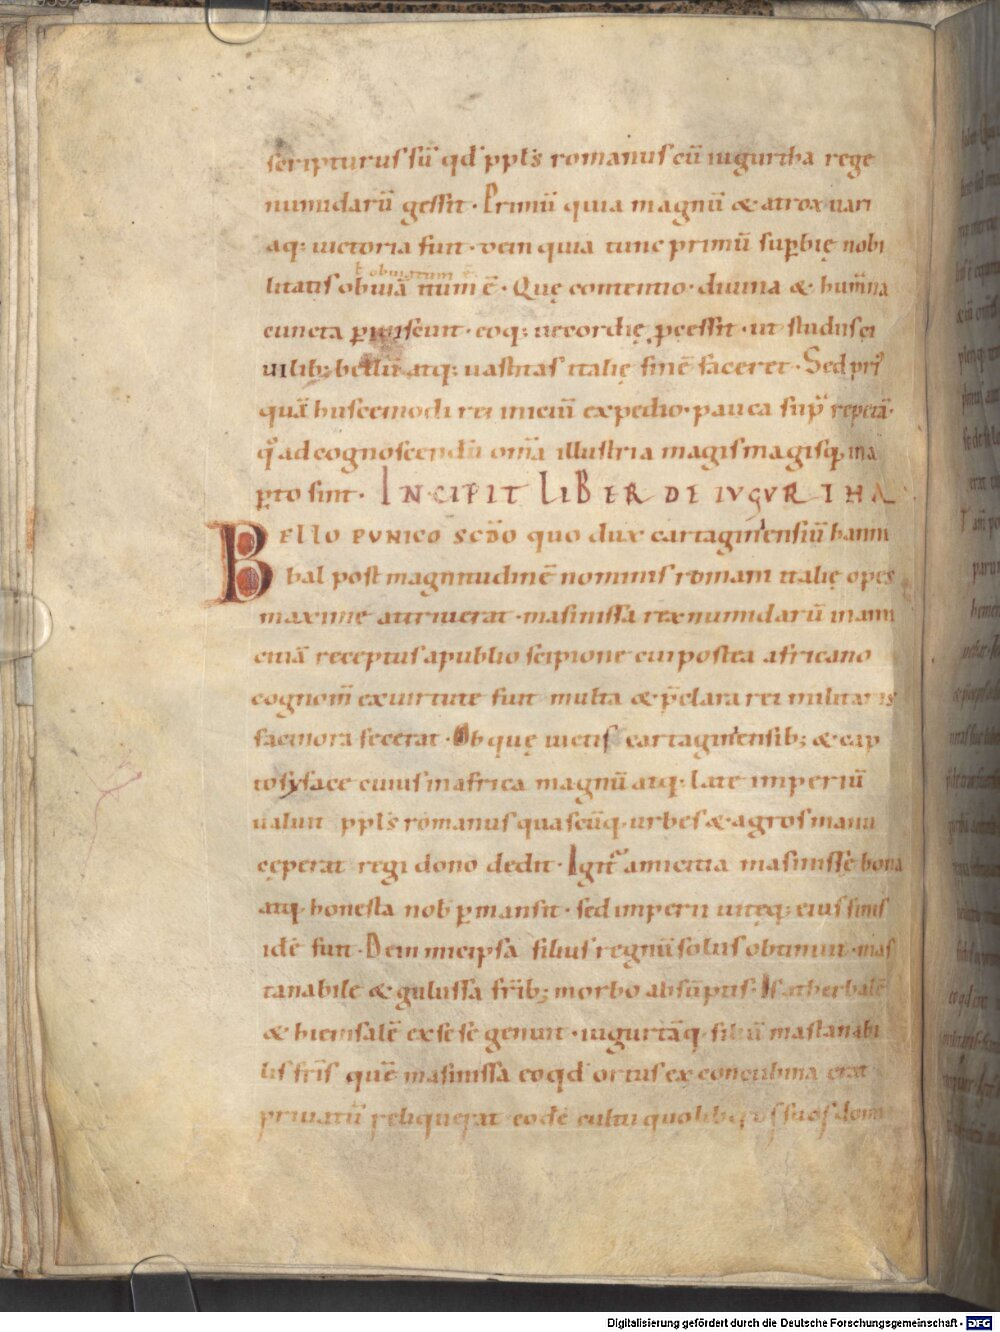 scripturus sū qđ ppl's romanus cū iugurtha rege
numidarū gessit · Primū quia magnū & atrox uari
aq; uictoria fuit · dein quia tunc primū supbię nobi
ł obuiatum ē
litatis obuiā itum ē · Quę contentio · diuina & humana
cuncta pmiscuit · eoq; uecordię pcessit · ut studiis ci
uilib; bellū atq; uastitas italię finē faceret · Sed pri
quā huiuscemodi rei iniciū expedio · pauca sup repetā ·
q̊ ad cognoscendū om̄a illustria magis magisq; in a
pto sint · INCIPIT LIBER DE IVGVRTHA
BELLO PVNICO SCDO quo dux cartaginensiū hanni
bal post magnitudinē nominis romani italię opes
maxime attriuerat · masinissa rex numidarū in ami
citiā receptus a publio scipione cui postea africano
cognom̄ ex uirtute fuit multa & p̄clara rei militaris
facinora fecerat · Ob quę uictis cartaginensib; & cap
to syface cuius in africa magnū atq; late imperiū
ualuit ppl's romanus quascūq; urbes & agros manu
cęperat regi dono dedit · Igit̃ amicitia masinissę bona
atq; honesta nob pmansit · sed imperii uitęq; eius finis
idē fuit · Dein micipsa filius regnū solus obtinuit · mas
tanabile & gulussa frīb; morbo absūptis · Is atherbalē
& hiemsalē ex sese genuit · iugurtāq; filiū mastanabi
lis fr̄is quē masinissa eo qđ ortus ex concubina erat
priuatū reliquerat eodē cultu quo lib&#818;os suos domi
Digitalisierung gefördert durch die Deutsche Forschungsgemeinschaft - DFG